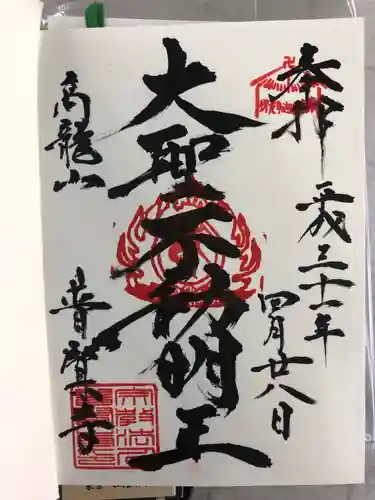 奉拝
平成三十一年
四月廿八日
大聖不動明王
高龍山
普賢寺